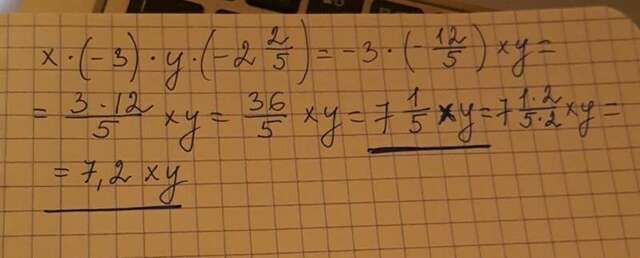 x · (-3) · y · (-2 2/5) = -3 · (-12/5) xy =
= 3·12/5 xy = 36/5 xy = 7 1/5 xy = 7 1·2/5·2 xy =
= 7,2 xy